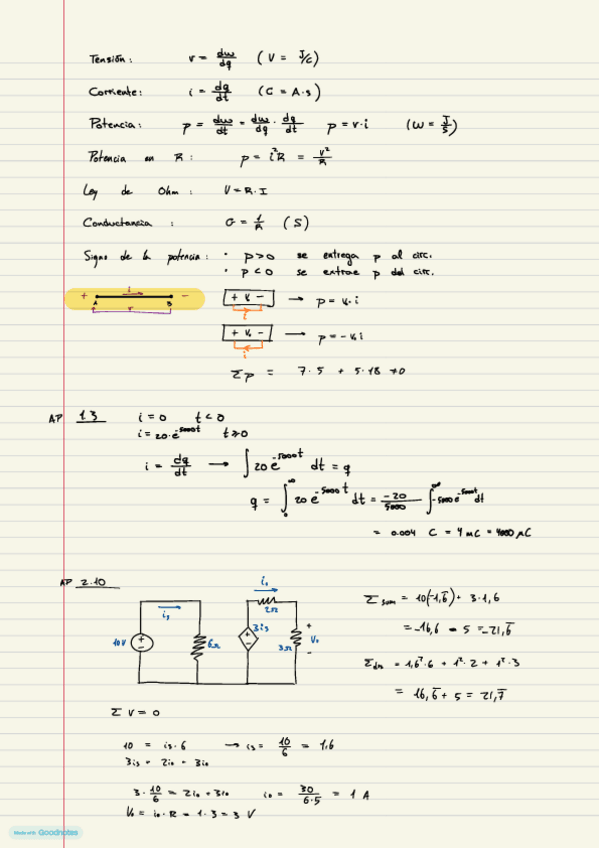 Tensión: v = dw/dq (V = J/C)
Corriente: i = dq/dt (C = A·s)
Potencia: p = dw/dt = dw/dq · dq/dt p = v·i (W = J/S)
Potencia en R: p = i²R = v²/R
Ley de Ohm: V = R·I
Conductancia: G = 1/R (S)
Signo de la potencia: · p>0 se entrega p al circ.
· p<0 se extrae p del circ.
+ i −
A B
+ v −
+ v. − → p = v.·i
i
+ v. − → p = −v.i
i
Σp = 7·5 + 5·18 ≠0
AP 1.3 i = 0 t<0
i = 20·e^-5000t t≥0
i = dq/dt → ∫20e^-5000t dt = q
q = ∫₀^∞ 20e^-5000t dt = -20/5000 ∫^∞ -5000e^-5000t dt
= 0.004 C = 4 mC = 4000 μC
AP 2.10
10V is 6Ω 3is io 2Ω 3Ω + Vo −
Σsum = 10(-1,6) + 3·1,6
= -16,6 - 5 = -21,6
Σdis = 1,6²·6 + 1²·2 + 1²·3
= 16,6 + 5 = 21,7
ΣV = 0
10 = is·6 → is = 10/6 = 1,6
3is = 2io + 3io
3·10/6 = 2io + 3io io = 30/6·5 = 1 A
Vo = io·R = 1·3 = 3 V
Made with Goodnotes